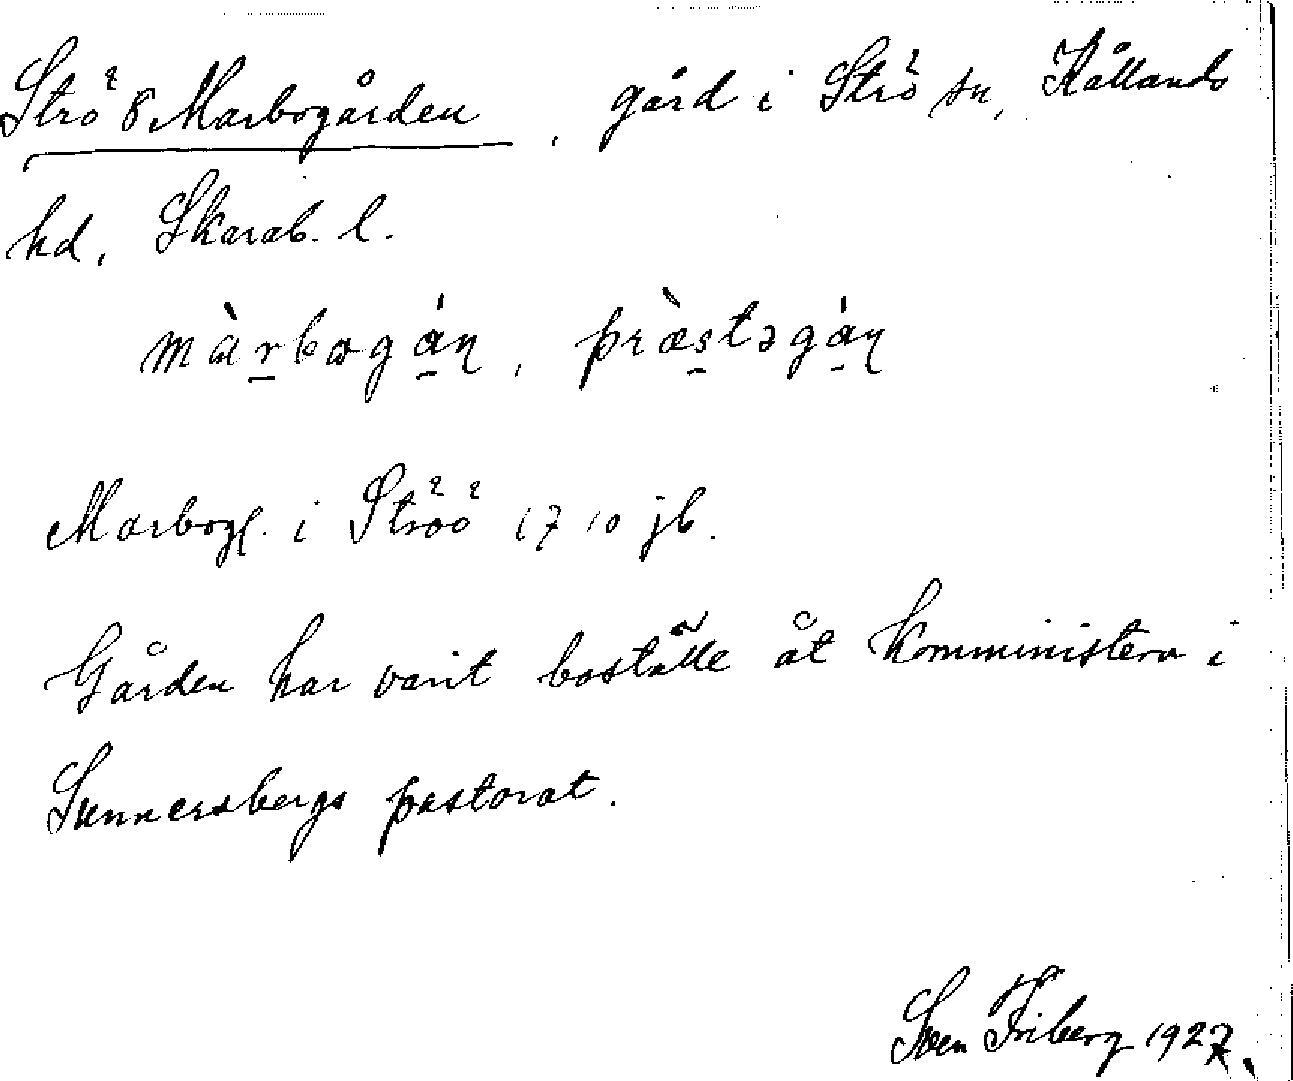 Strö 8 Marbogården, gård i Strö sn, Kållands
hd, Skarab. l.
màrbogán, præ̀stəgán
Marbog. i Ströö 1710 jb.
Gården har varit boställe åt komministern i
Sunnersbergs pastorat.
Sven Friberg 1927.